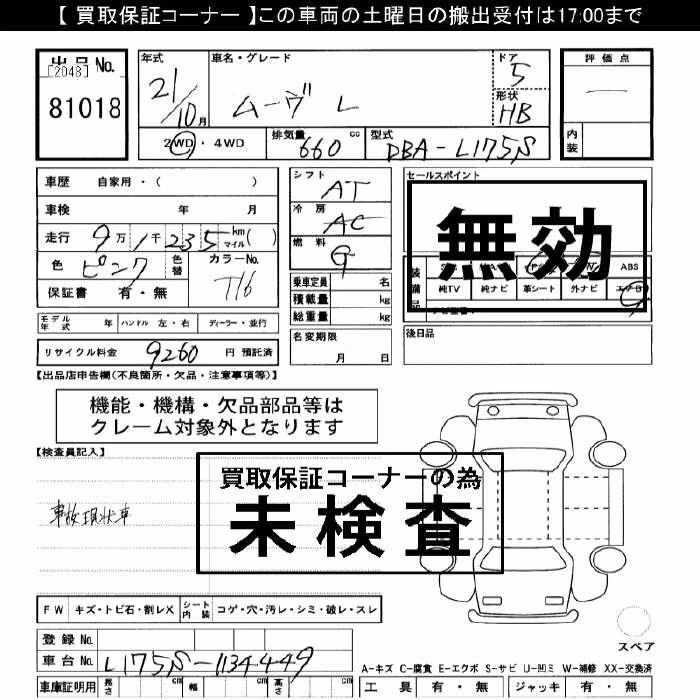 【 買取保証コーナー 】この車両の土曜日の搬出受付は17:00まで
出品 No.
[2048]
81018
年式
21/10月
車名・グレード
ムーヴ L
ドア
5
形状
HB
評価点
内装
2WD ・ 4WD
排気量
660 cc
型式
DBA-L175S
車歴 自家用・( )
車検 年 月
走行 9万 1千 235 km マイル ( )
色 ピンク 色替 カラーNo. T16
保証書 有・無
シフト AT
冷房 AC
燃料 G
乗車定員 名
積載量 kg
総重量 kg
名変期限
月 日
セールスポイント
無効
装備品
ABS
純TV 純ナビ 革シート 外ナビ エアB
後日品
モデル年式 年 ハンドル 左・右 ディーラー・並行
リサイクル料金 9260 円 預託済
【出品店申告欄(不良箇所・欠品・注意事項等)】
機能・機構・欠品部品等は
クレーム対象外となります
【検査員記入】
事故現状車
買取保証コーナーの為
未検査
FW キズ・トビ石・割レX シート内装 コゲ・穴・汚レ・シミ・破レ・スレ
スペア
登録 No.
車台 No. L175S-1134449
A-キズ C-腐食 E-エクボ S-サビ U-凹ミ W-補修 XX-交換済
車庫証明用 長さ cm 幅 cm 高さ cm
工具 有・無 ジャッキ 有・無